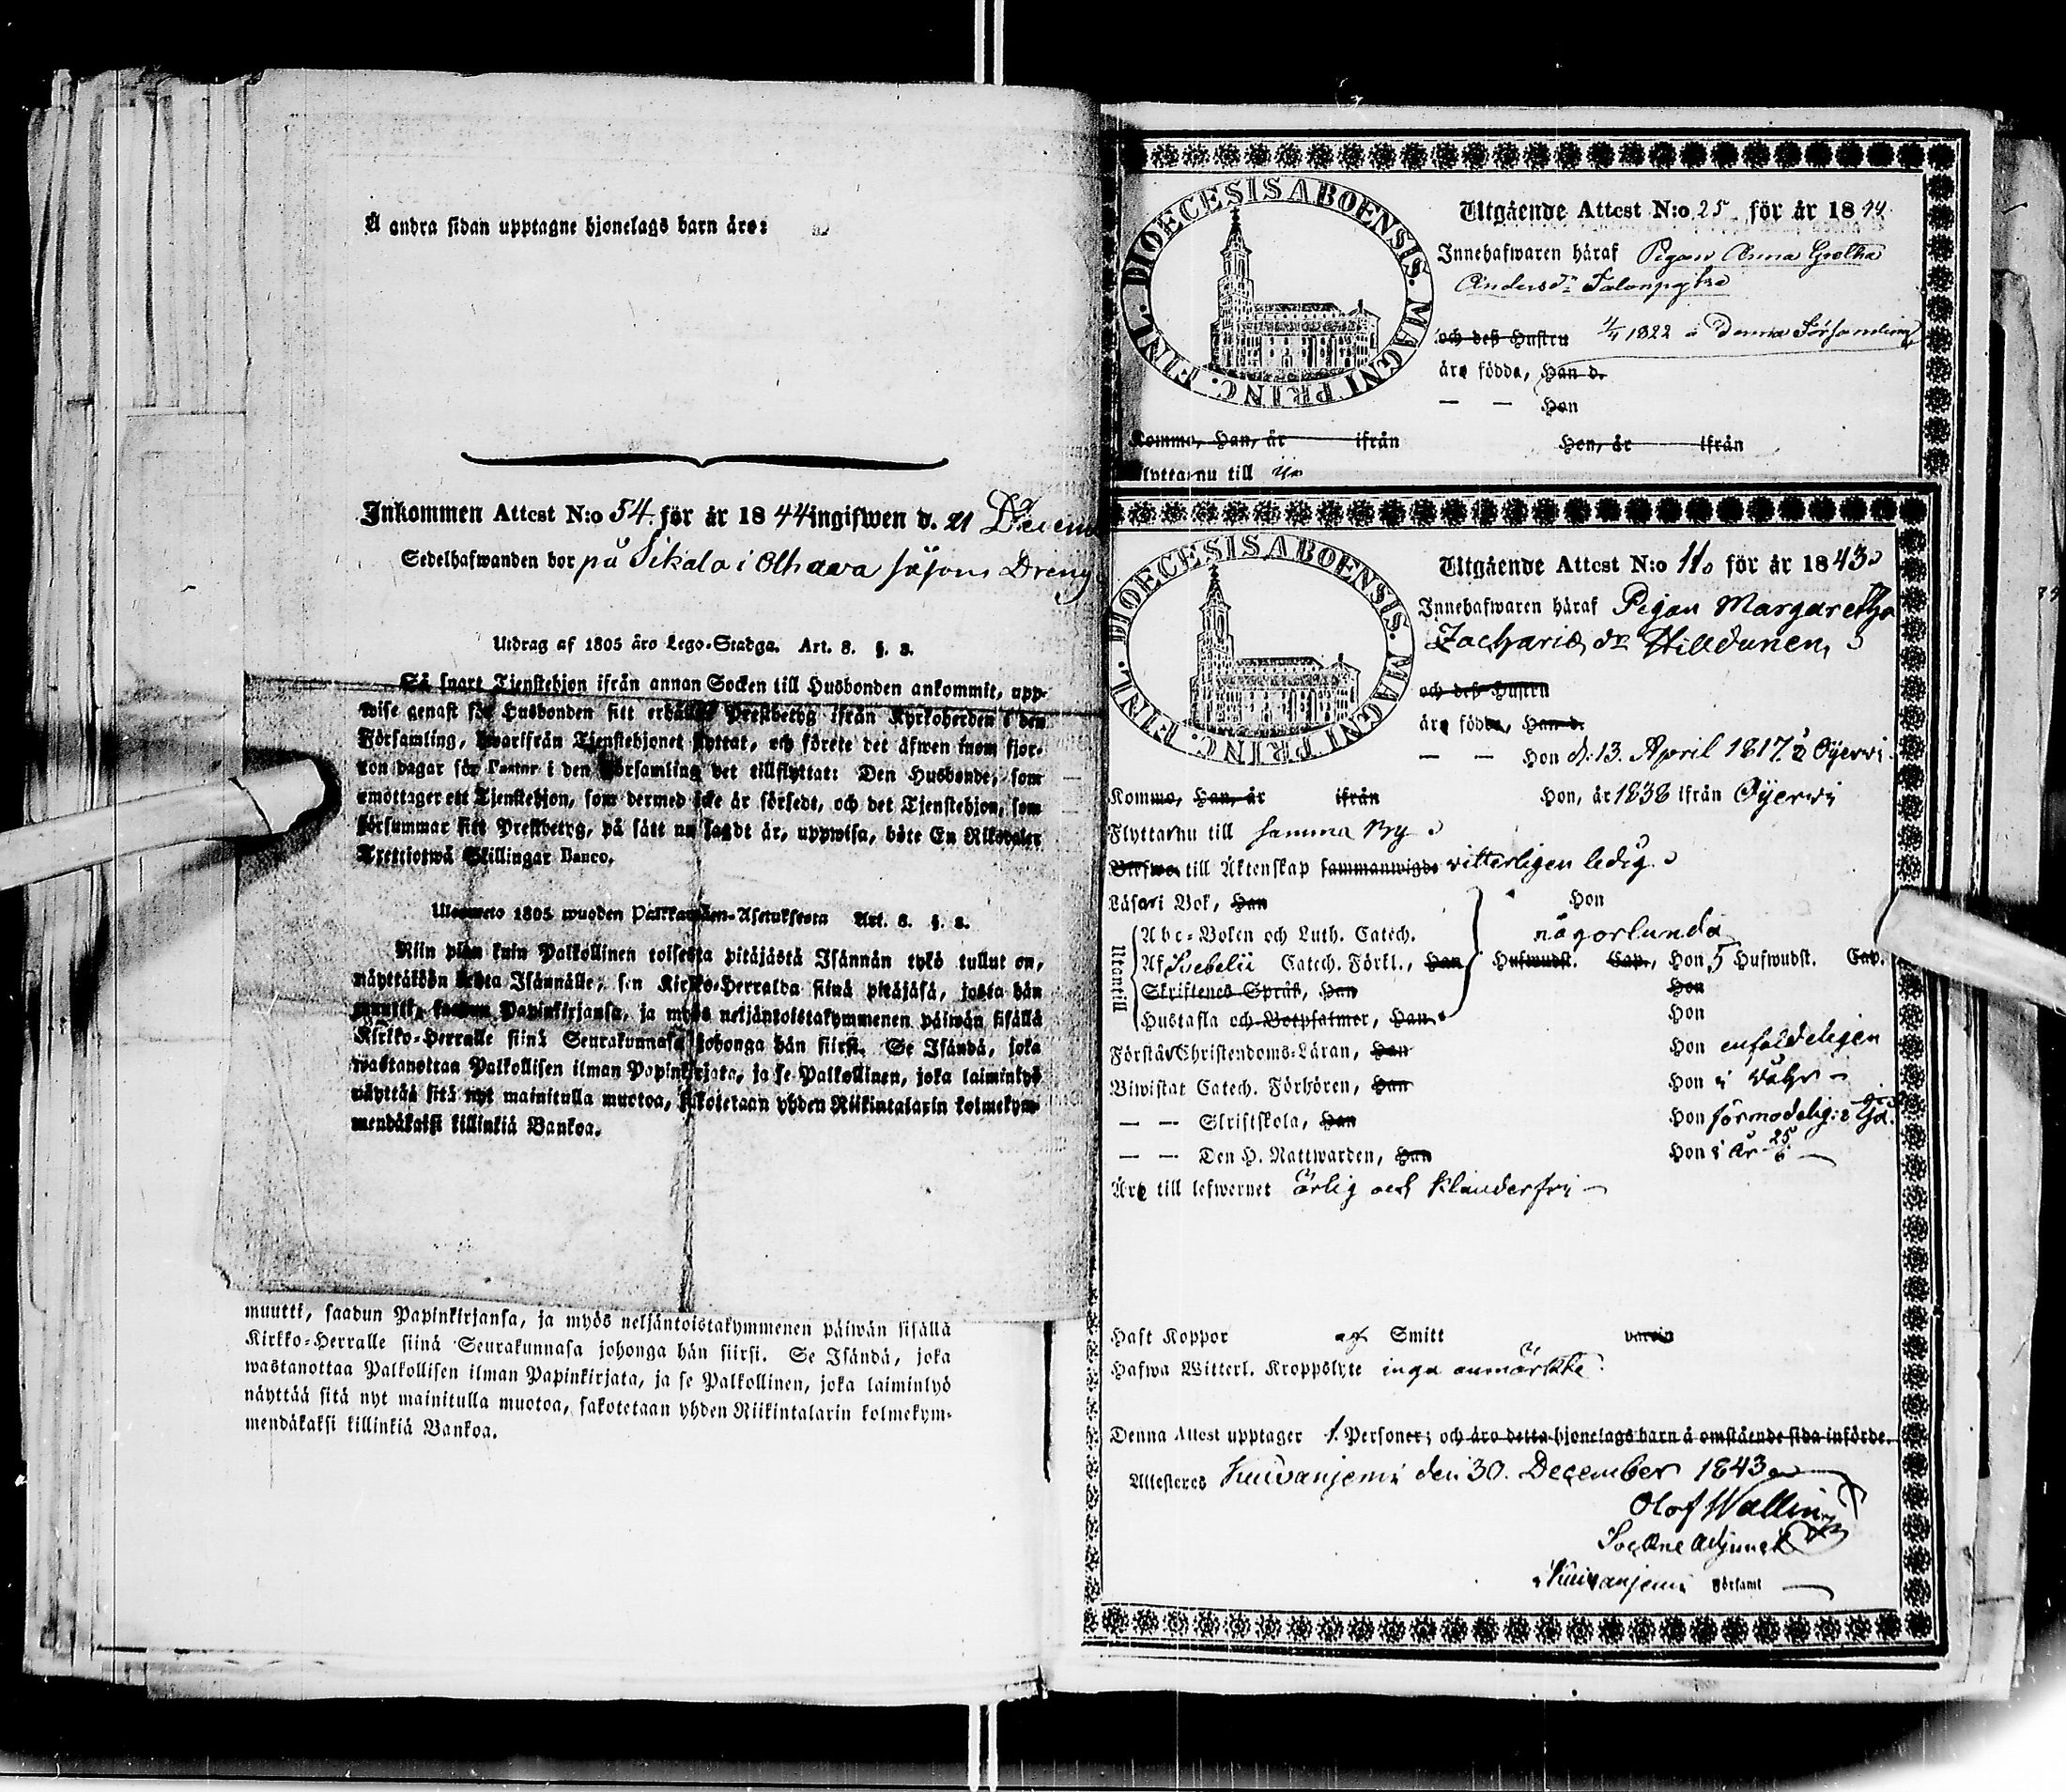 Å andra sidan upptagne hjonelags barn äro:
Inkommen Attest N:o 54. för år 1844 ingifwen d. 21 Decem
Sedelhafwanden bor på Sikala i Olhava såsom Dreng
Utdrag af 1805 års Lego-Stadga. Art. 8. §. 2.
Så snart Tjenstehjon ifrån annan Socken till Husbonden ankommit, upp-
wise genast för Husbonden sitt erhållna Prestbetyg ifrån Kyrkoherden i den
Församling, hwarifrån Tjenstehjonet flyttat, och förete det äfwen inom fjor-
ton dagar för Pastor i den Församling det tillflyttat: Den Husbonde, som
emottager ett Tjenstehjon, som dermed icke är försedt, och det Tjenstehjon, som
försummar sitt Prestbetyg, på sätt nu sagdt är, uppwisa, böte En Riksdaler
Trettiotwå Skillingar Banco.
Ulosweto 1805 wuoden Palkkawäen-Asetuksesta Art. 8. §. 2.
Niin pian kuin Palkollinen toisesta pitäjästä Isännän tykö tullut on,
näyttäköön kohta Isännälle, sen Kirkko-Herralda siinä pitäjäsä, josta hän
muutti, saadun Papinkirjansa, ja myös neljäntoistakymmenen päiwän sisällä
Kirkko-Herralle siinä Seurakunnasa johonga hän siirsi. Se Isändä, joka
wastanottaa Palkollisen ilman Papinkirjata, ja se Palkollinen, joka laiminlyö
näyttää sitä nyt mainitulla muotoa, sakotetaan yhden Riikintalarin kolmekym-
mendäkaksi killinkiä Bankoa.
muutti, saadun Papinkirjansa, ja myös neljäntoistakymmenen päiwän sisällä
Kirkko-Herralle siinä Seurakunnasa johonga hän siirsi. Se Isändä, joka
wastanottaa Palkollisen ilman Papinkirjata, ja se Palkollinen, joka laiminlyö
näyttää sitä nyt mainitulla muotoa, sakotetaan yhden Riikintalarin kolmekym-
mendäkaksi killinkiä Bankoa.
DIOECESIS ABOENSIS. MAGNI PRINC. FINL.
Utgående Attest N:o 25 för år 1844
Innehafwaren häraf Pigan Anna Gretha
Andersdr
och deß Hustru 1822 i Denna Församling
äro födde, Han d.
— — Hon
Kommo, Han, år ifrån Hon, år ifrån
Flytta nu till Ijo
DIOECESIS ABOENSIS. MAGNI PRINC. FINL.
Utgående Attest N:o 11. för år 1843.
Innehafwaren häraf Pigan Margaretha
Zachariæ dr Hilldunen,
och deß Hustru
äro födde, Han d.
— — Hon d. 13. April 1817 i Öijerwi
Kommo, Han, år ifrån Hon, år 1838 ifrån Öijerwi
Flyttar nu till samma By
Blefwo till Äktenskap sammanwigde witterligen ledig.
Läsa i Bok, Han Hon
Utantill
Abc-Boken och Luth. Catech. någorlunda
Af Svebelii Catech. Förkl., Han Hufwudst. Cap., Hon 5 Hufwudst. Cap.
Skriftenes Språk, Han Hon
Hustafla och Botpsalmer, Han Hon
Förstår Christendoms-Läran, Han Hon enfaldeligen
Biwistat Catech. Förhören, Han Hon i
— — Skriftskola, Han Hon förmodelig:
— — Den H. Nattwarden, Han Hon i år 25/6
Äro till lefwernet ärlig och klanderfri
Haft Koppor af Smitt vaccin
Hafwa Witterl. Kroppslyte inga anmärkte.
Denna Attest upptager 1. Personer; och äro detta hjonelags barn å omstående sida införde.
Attesteres Kuivanjemi den 30. December 1843
Olof Wallin
Sockne Adjunct
i Kuivanjemi Församl